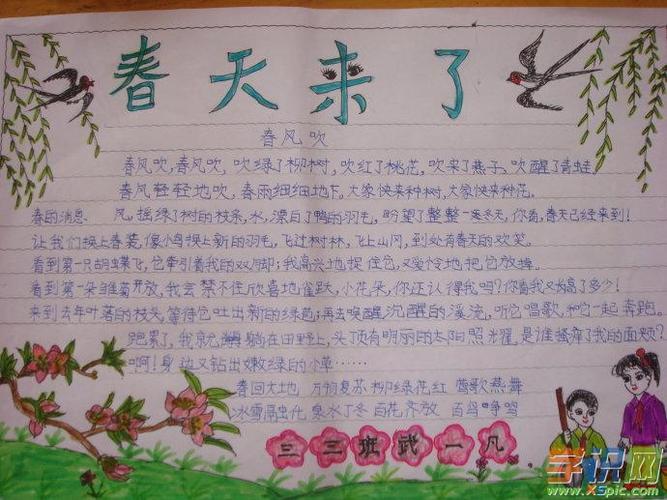 春天来了
春风吹
春风吹,春风吹,吹绿了柳树,吹红了桃花,吹来了燕子,吹醒了青蛙。
春风轻轻地吹,春雨细细地下。大家快来种树,大家快来种花。
春的消息 风,摇绿了树的枝条,水,漂白了鸭的羽毛,盼望了整整一寒冬天,你看,春天已经来到!
让我们换上春装,像小鸟换上新的羽毛,飞过树林,飞上山冈,到处有春天的欢笑。
看到第一只蝴蝶飞,它牵引着我的双脚;我高兴地捉住它,又爱怜地把它放掉。
看到第一朵雏菊开放,我会禁不住欣喜地雀跃,小花朵,你还认得我吗?你看我又长高了多少!
来到去年叶落的枝头,等待它吐出新的绿苞;再去唤醒沉醒的溪流,听它唱歌,和它一起奔跑。
跑累了,我就躺在田野上,头顶有明丽的太阳照耀,是谁搔痒了我的面颊?
啊!身边又钻出嫩绿的小草……
春回大地 万物复苏 柳绿花红 莺歌燕舞
冰雪融化 泉水丁冬 百花齐放 百鸟争鸣
三三班武一凡
学识网
www.xspic.com